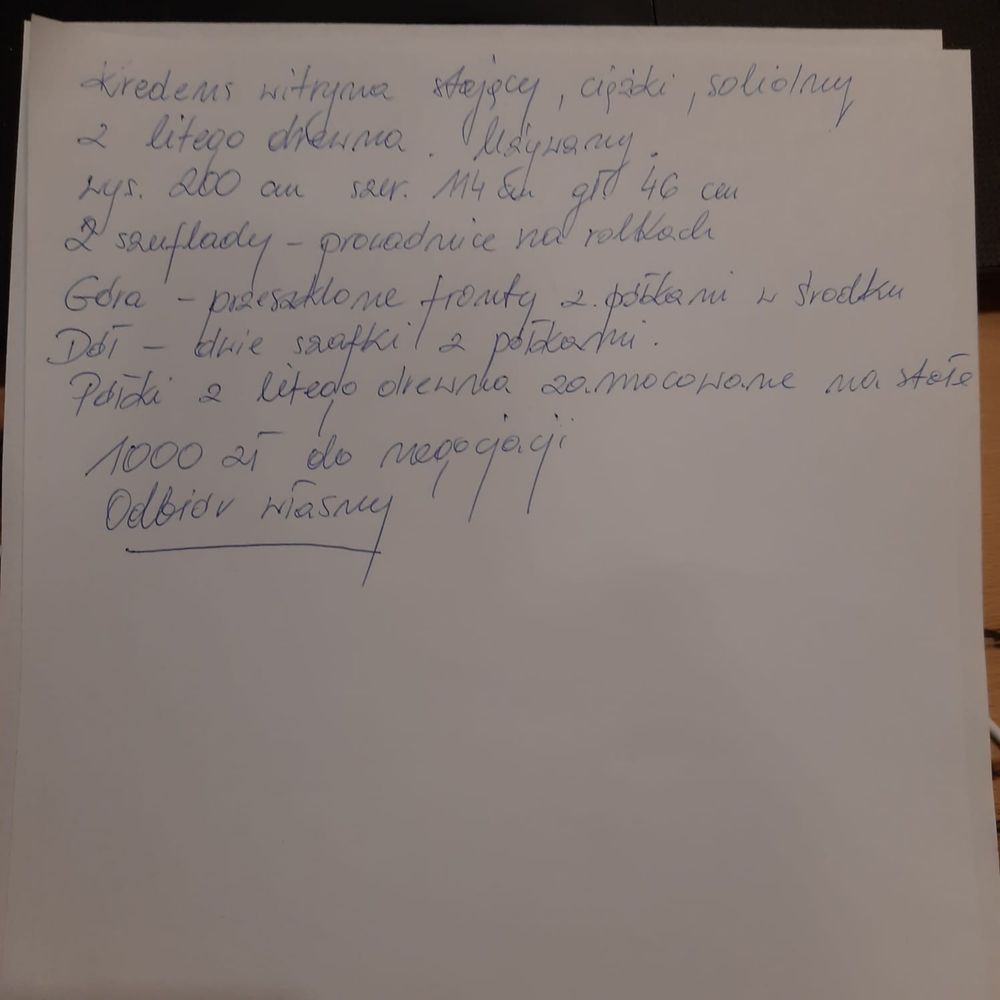 Kredens witryna stojący, ciężki, solidny
z litego drewna. Używany.
wys. 200 cm szer. 114 cm gł 46 cm
2 szuflady - prowadnice na rolkach
Góra - przeszklone fronty z półkami w środku
Dół - dwie szafki z półkami.
Półki z litego drewna zamocowane na stałe
1000 zł do negocjacji
Odbiór własny